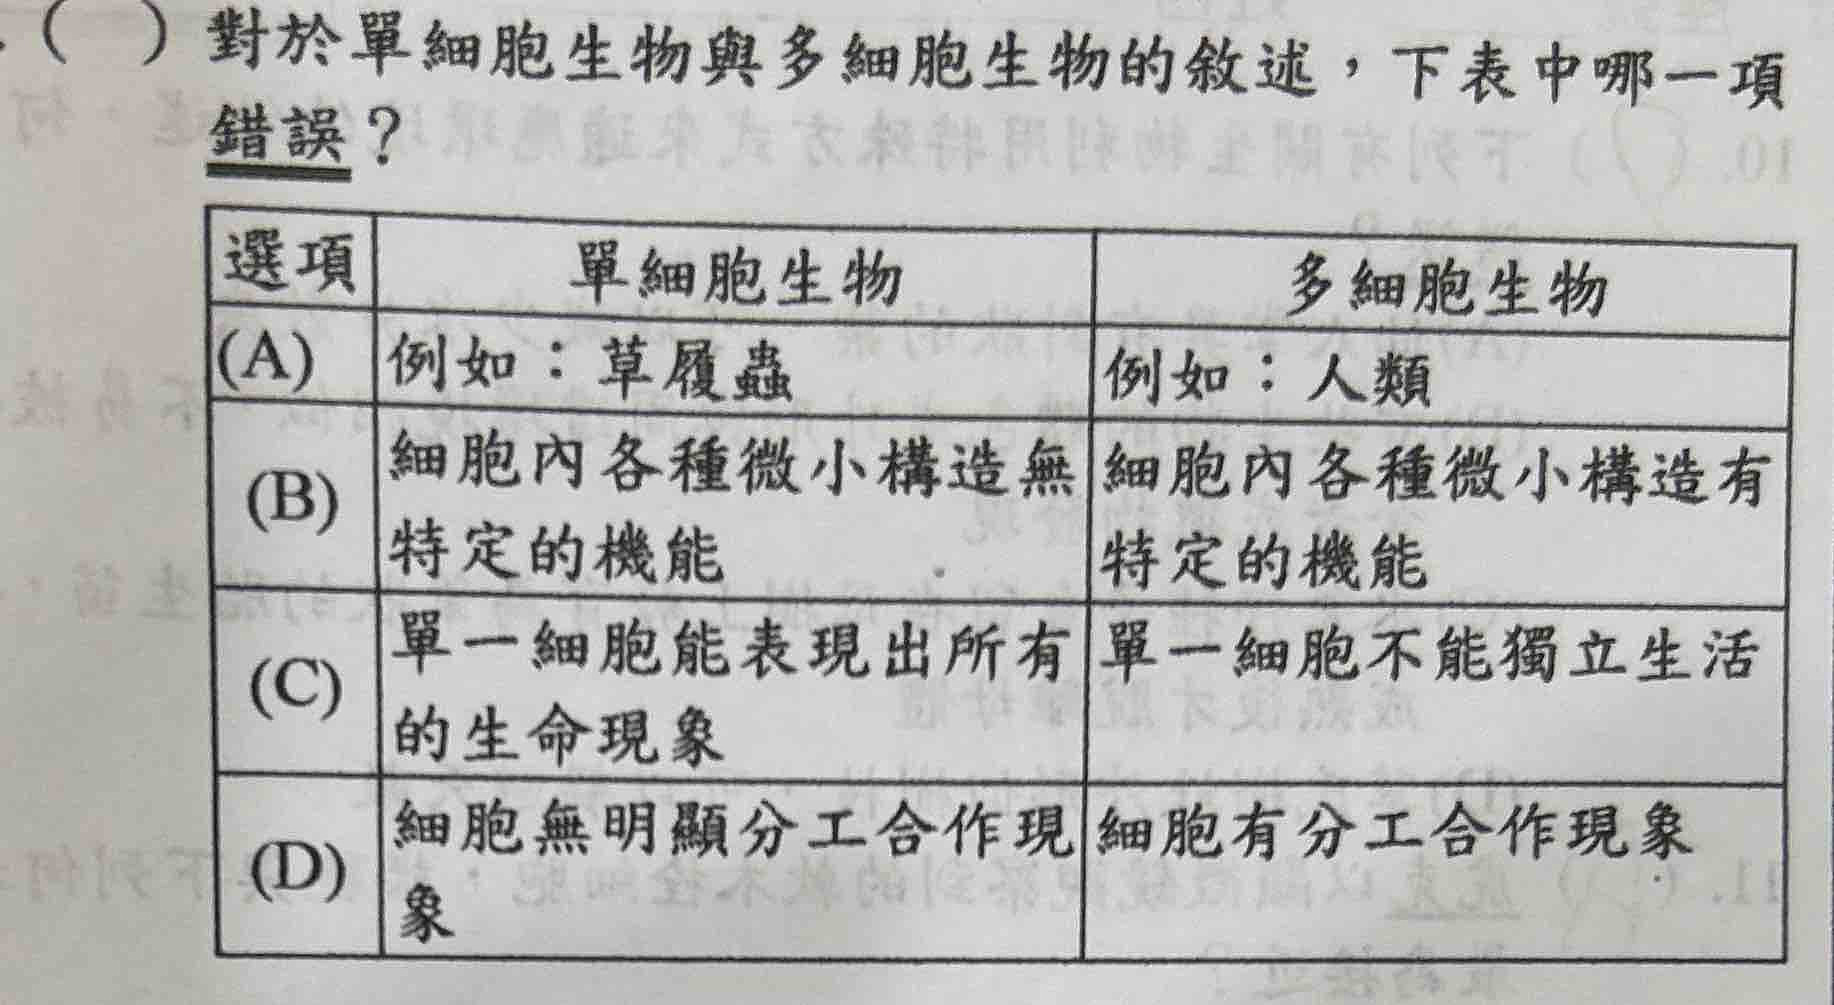 ( ) 對於單細胞生物與多細胞生物的敘述，下表中哪一項
錯誤？
選項 單細胞生物 多細胞生物
(A) 例如：草履蟲 例如：人類
(B) 細胞內各種微小構造無 細胞內各種微小構造有
特定的機能 特定的機能
(C) 單一細胞能表現出所有 單一細胞不能獨立生活
的生命現象
(D) 細胞無明顯分工合作現 細胞有分工合作現象
象